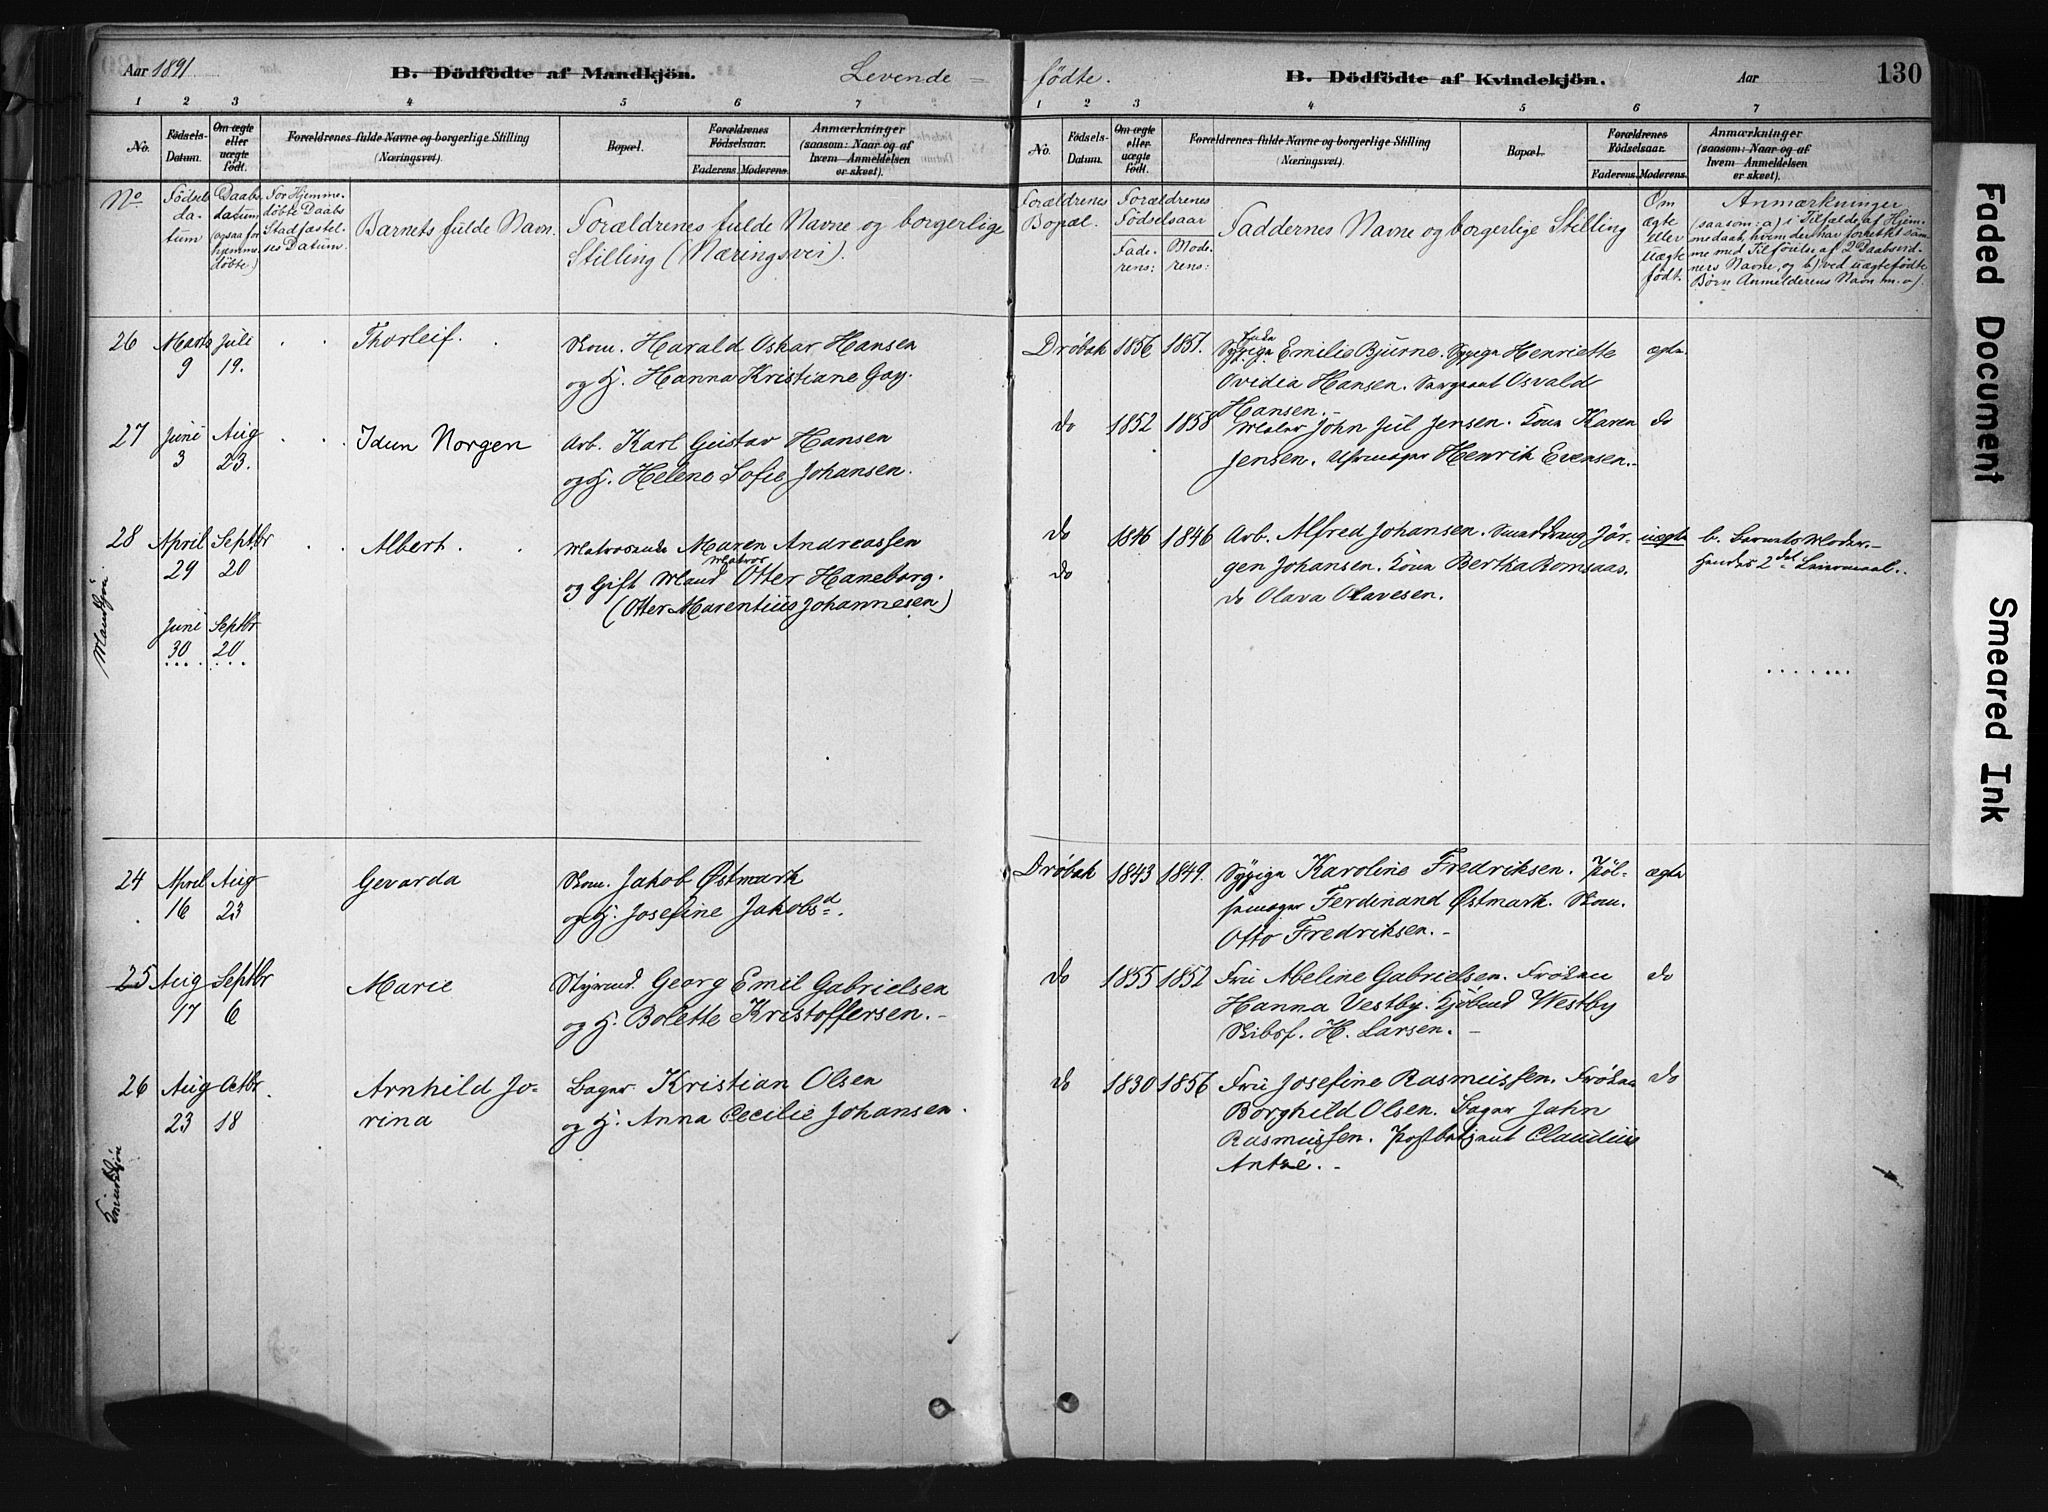 Aar 1891
B. Dödfödte af Mandkjön.
Levende-
1 2 3 4 5 6 7
No.
Födsels-Datum.
Om ægte eller uægte födt.
Forældrenes fulde Navne og borgerlige Stilling
(Næringsvei).
Bopæl.
Forældrenes Födselsaar.
Faderens. Moderens.
Anmærkninger
(saasom: Naar og af
hvem Anmeldelsen
er skeet).
födte.
B. Dödfödte af Kvindekjön.
Aar
130
1 2 3 4 5 6 7
No.
Födsels-Datum.
Om ægte eller uægte födt.
Forældrenes fulde Navne og borgerlige Stilling
(Næringsvei).
Bopæl.
Forældrenes Födselsaar.
Faderens. Moderens.
Anmærkninger
(saasom: Naar og af
hvem Anmeldelsen
er skeet).
No
Födsels da-tum
Daabs datum (ogsaa for hjemme döbte)
For Hjemme-döbte Daabs Stadfæstel-ses Datum.
Barnets fulde Navn.
Forældrenes fulde Navne og borgerlige
Stilling (Næringsvei).
Forældrenes Bopæl.
Forældrenes Födselsaar
Fade-rens: Mode-rens:
Faddernes Navne og borgerlige Stilling
Om ægte eller uægte födt.
Anmærkninger
(saasom: a) i Tilfælde af Hjem-
medaab, hvem der har forrettet sam-
me med Tilföielse af 2 Daabsvid-
ners Navne, og b) ved uægtefödte
Börn Anmelderens Navn m. v.)
26 Marts 9 Juli 19. Thorleif. Skom. Harald Oskar Hansen
og H. Hanna Kristiane Gay.
Dröbak 1856 1851. Emilie Bjurne. Sypige Henriette
Ovidia Hansen. Sergeant Osvald
Hansen.-
ægte.
27 Juni 3 Aug 23. Idun Norgen Arb. Karl Gustav Hansen
og H. Helene Sofie Johansen.
do 1852 1858 John Jul Jensen. Kone Karen
Jensen. Henrik Evensen.-
do
28 April 29 Septbr 20 Albert. Maren Andreassen
og Gift Mand Matros Otter Haneborg.
(Otter Marentius Johannesen)
Juni 30 Septbr 20
do 1846 1846 Arb. Alfred Johansen. Smeddreng Jör-
do gen Johansen. Kone Bertha Romsaas.
do Olava Olavesen.
uægte
b. Barnets Moder.-
Hendes 2det Leiermaal.
Mandkjön.
24 April 16 Aug 23 Gevarda Skom. Jakob Östmark
og H. Josefine Jakobsd.
Dröbak 1843 1849. Sypige Karoline Fredriksen. Pöl-
semager Ferdinand Östmark. Skom.
Otto Fredriksen.-
ægte
25 Aug 17 Septbr 6 Marie Styrmd. Georg Emil Gabrielsen
og H. Bolette Kristoffersen.-
do 1855 1852 Fru Meline Gabrielsen. Fröken
Hanna Vestby. Kjöbmd Westby
Skibsf. H. Larsen.-
do
26 Aug 23 Octbr 18 Arnhild Jo-
rina
Bager Kristian Olsen
og H. Anna Cecilie Johansen.
do 1830 1856 Fru Josefine Rasmussen. Fröken
Borghild Olsen. Bager Jahn
Rasmussen. Postbetjent Claudius
Antré.-
do
Kvindekjön
Faded Document
Smeared Ink